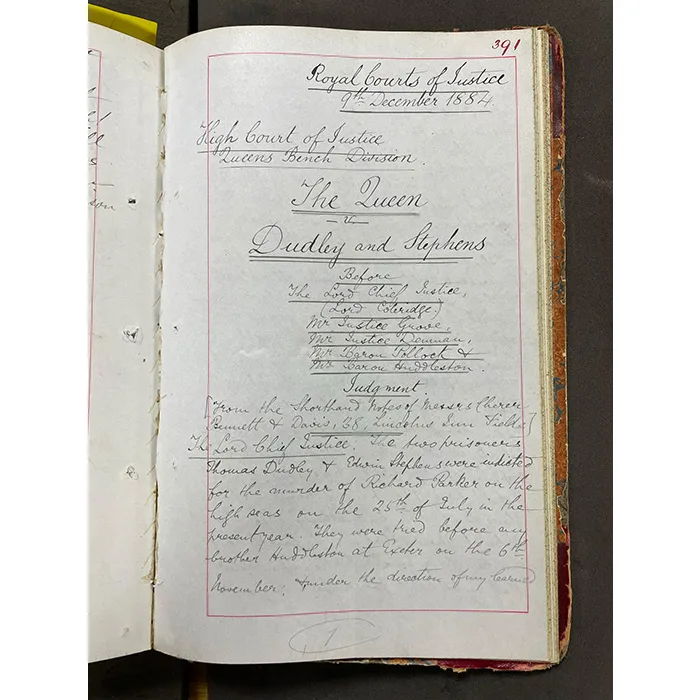 391
Royal Courts of Justice
9th December 1884
High Court of Justice
Queens Bench Division.
The Queen
v
Dudley and Stephens
Before
The Lord Chief Justice,
(Lord Coleridge)
Mr Justice Grove,
Mr Justice Denman,
Mr Baron Pollock &
Mr Baron Huddleston.
Judgment.
[From the Shorthand Notes of Messrs
Bennett & Davis, 38, Lincolns Inn Fields]
The Lord Chief Justice. The two prisoners
Thomas Dudley & Edwin Stephens were indicted
for the murder of Richard Parker on the
high seas on the 25th of July in the
present year. They were tried before my
brother Huddleston at Exeter on the 6th
November; & under the direction of my learned
1